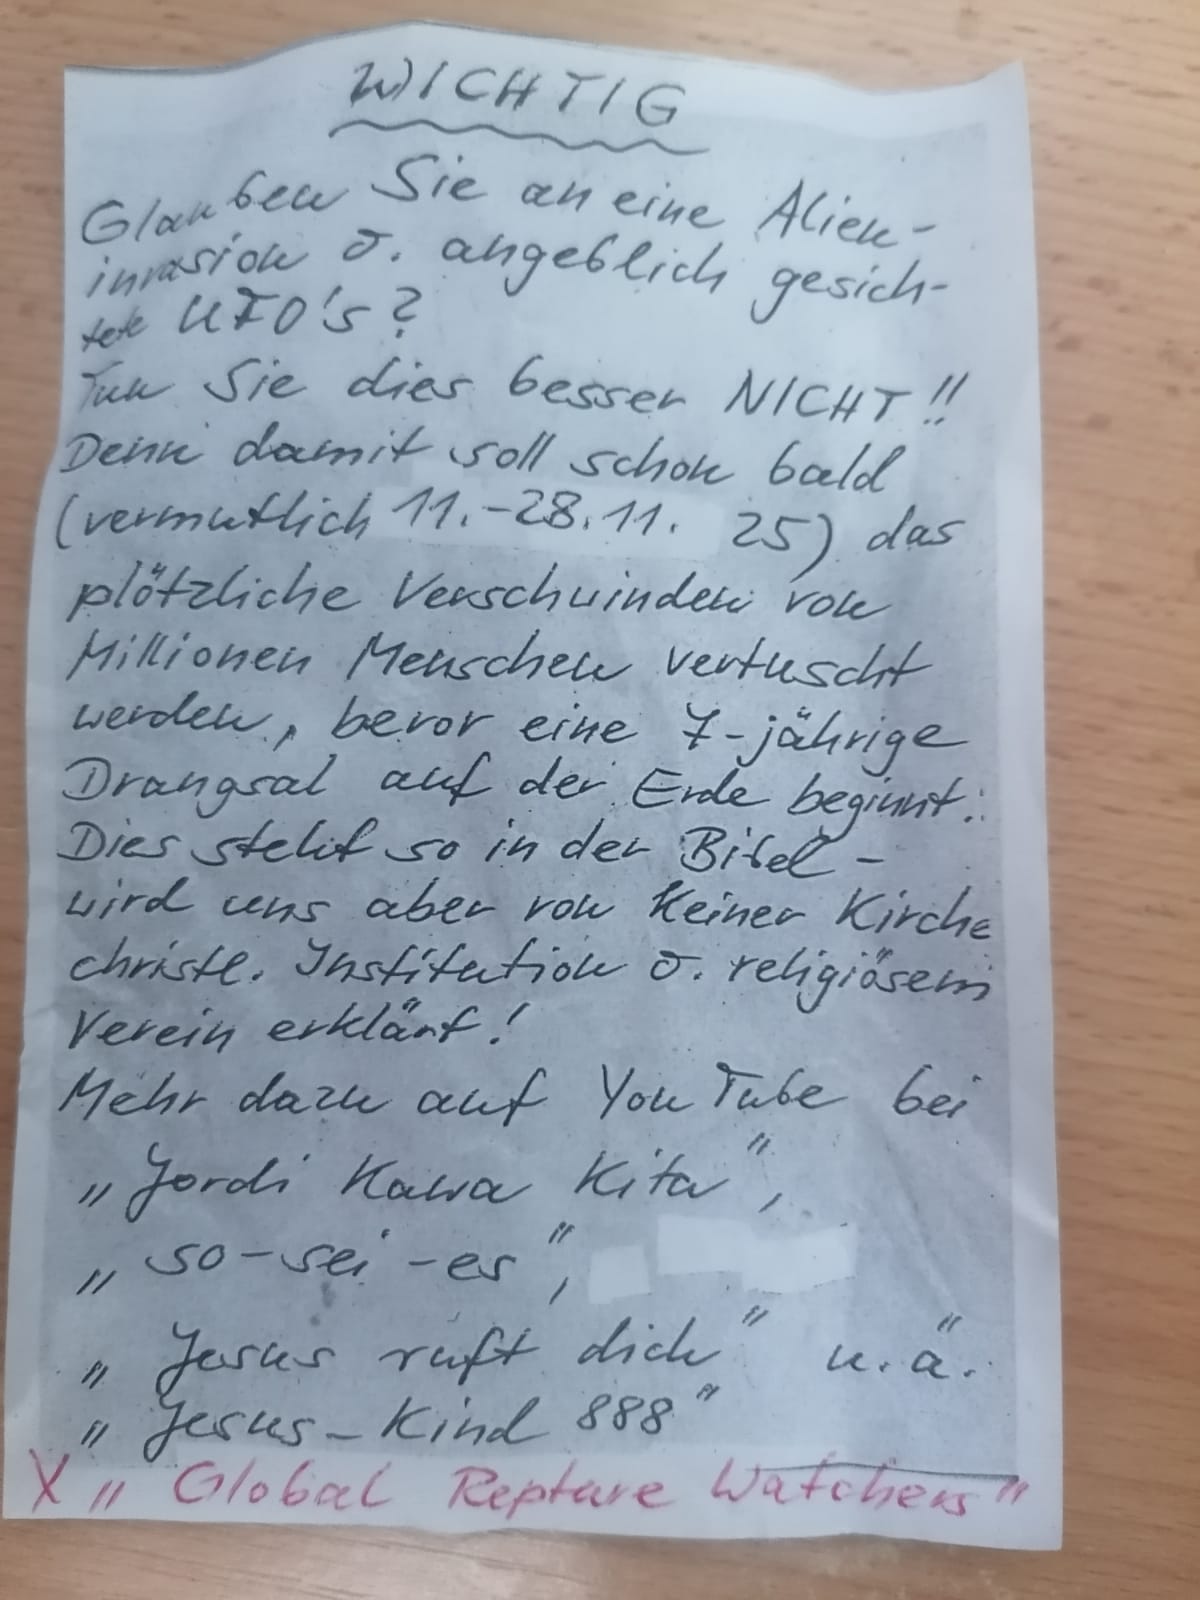 WICHTIG
Glauben Sie an eine Alien-
invasion o. angeblich gesich-
tete UFO's?
Tun Sie dies besser NICHT!!
Denn damit soll schon bald
(vermutlich 11.-28.11. 25) das
plötzliche Verschwinden von
Millionen Menschen vertuscht
werden, bevor eine 7-jährige
Drangsal auf der Erde beginnt.
Dies steht so in der Bibel -
wird uns aber von keiner Kirche
christl. Institution o. religiösem
Verein erklärt!
Mehr dazu auf YouTube bei
„Jordi Kawa Kita",
„so-sei-es",
„Jesus ruft dich" u.ä.
„Jesus-Kind 888"
X „Global Repture Watchers"